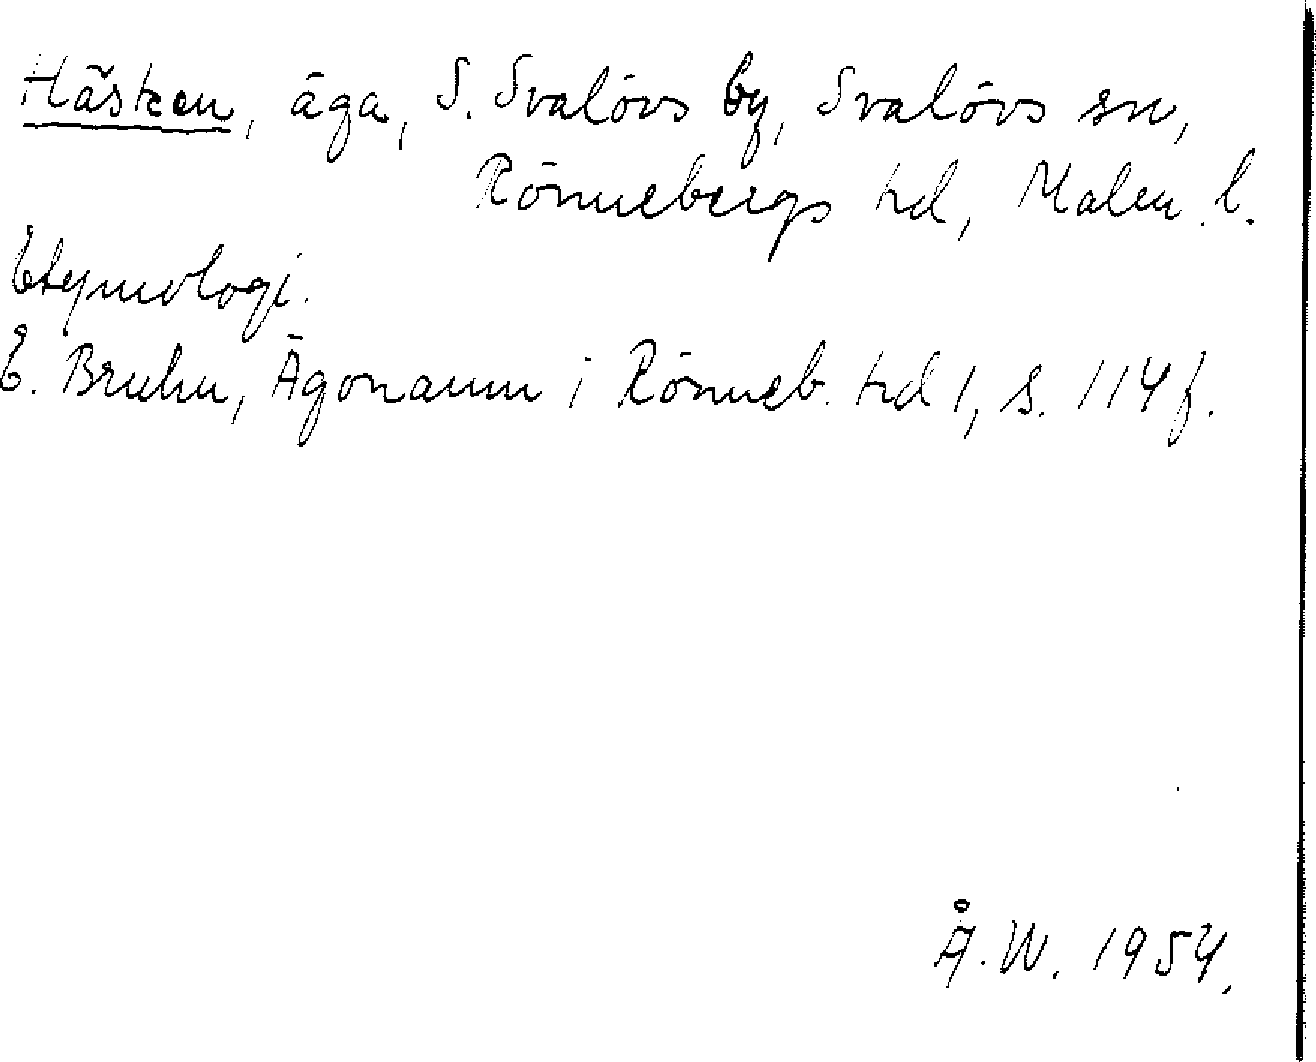 Häsken, äga, S. Svalövs by, Svalövs sn,
Rönnebergs hd, Malm. l.
Etymologi.
E. Bruhn, Ägonamn i Rönneb. hd 1, s. 114 f.
Å. W. 1954.